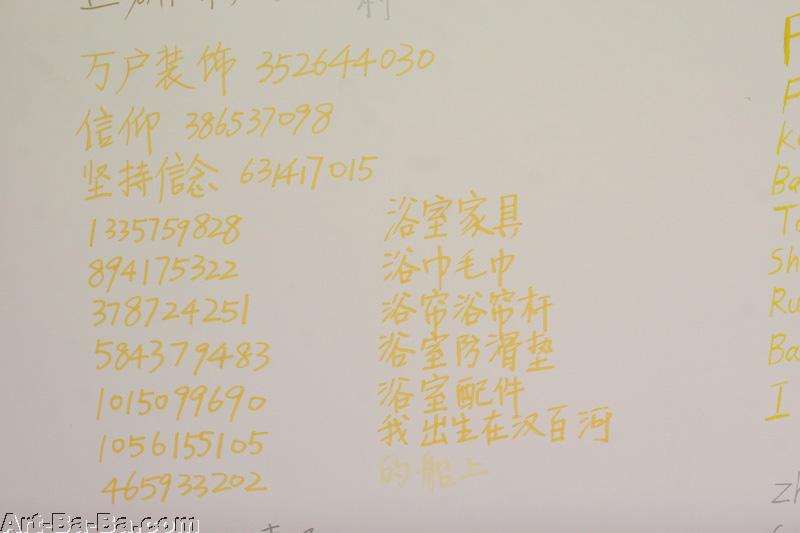 万户装饰 352644030
信仰 386537098
坚持信念 631417015
1335759828
894175322
378724251
584379483
1015099690
1056155105
465933202
浴室家具
浴巾毛巾
浴帘浴帘杆
浴室防滑垫
浴室配件
我出生在汉百河
的船上
Ba
To
Sh
Ru
Ba
I
zh
Art-Ba-Ba.com